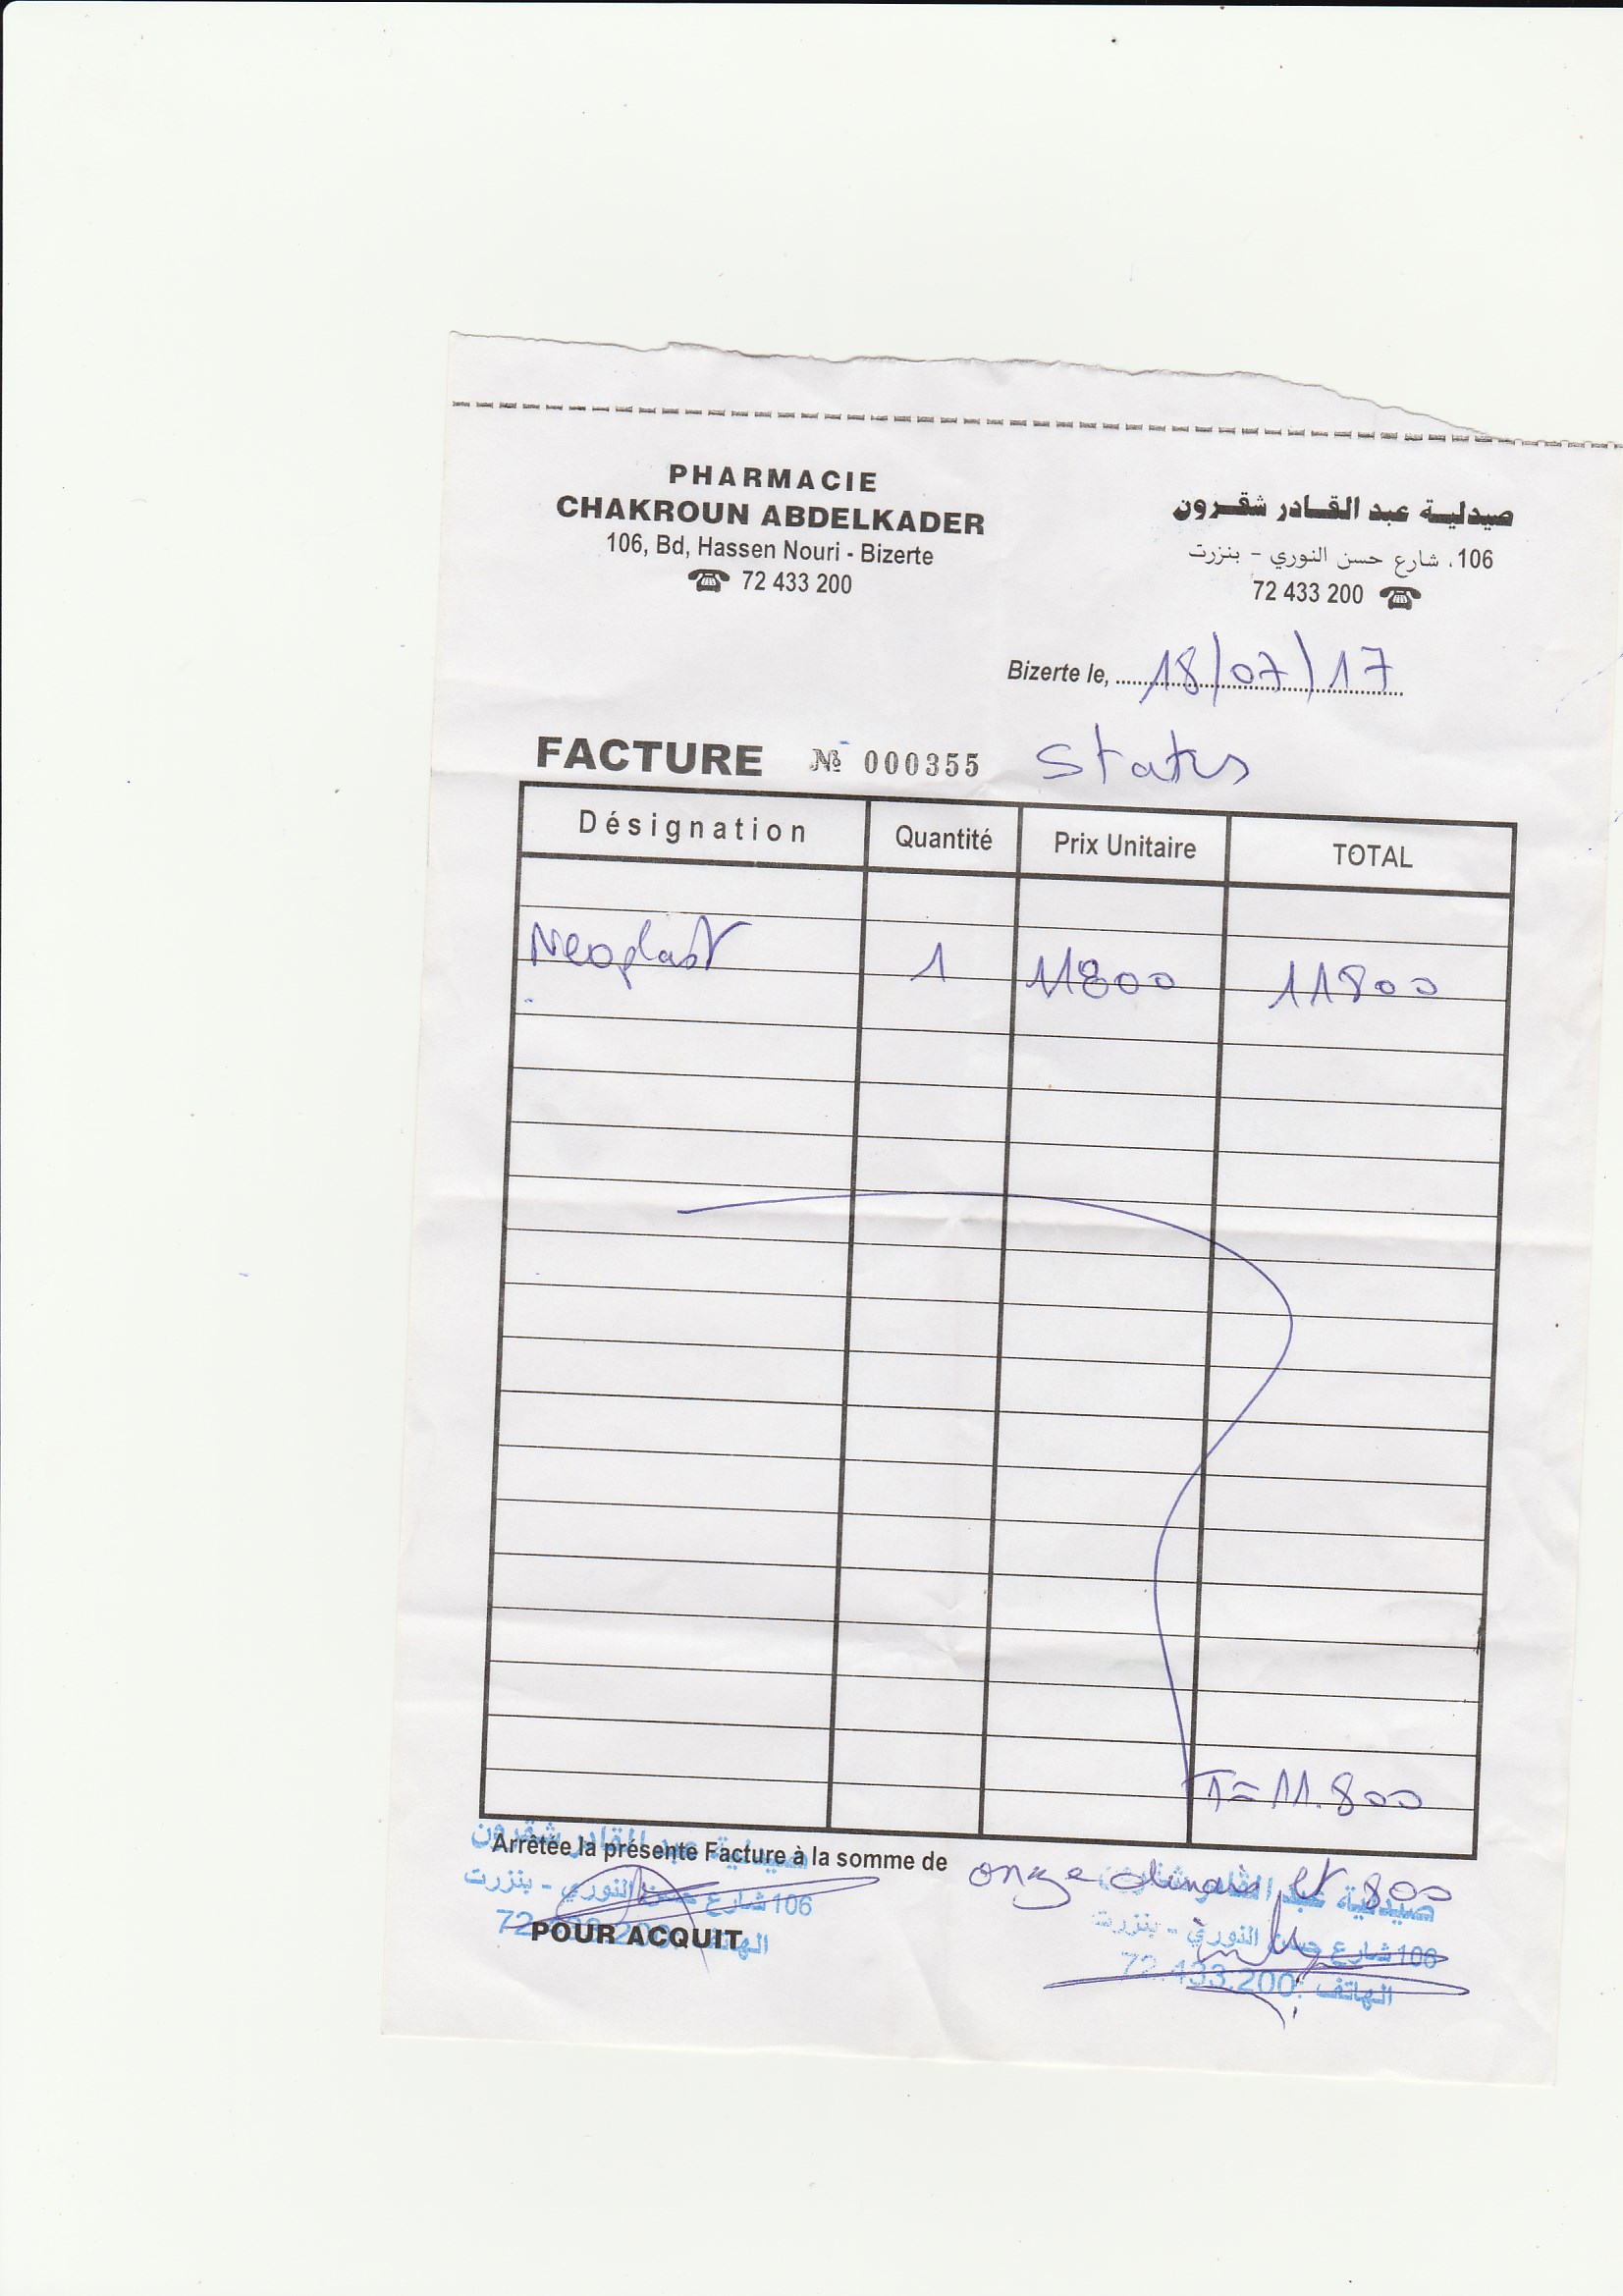 PHARMACIE
CHAKROUN ABDELKADER
106, Bd, Hassen Nouri - Bizerte
72 433 200
صيدلية عبد القادر شقرون
106، شارع حسن النوري - بنزرت
72 433 200
Bizerte le, 18/07/17
FACTURE № 000355 Status
Désignation Quantité Prix Unitaire TOTAL
Neoplast 1 11800 11800
T= 11.800
Arrêtée la présente Facture à la somme de onze dinars et 800
صيدلية عبد القادر شقرون
106 شارع حسن النوري - بنزرت
POUR ACQUIT
صيدلية عبد القادر شقرون
106 شارع حسن النوري - بنزرت
الهاتف : 72.433.200